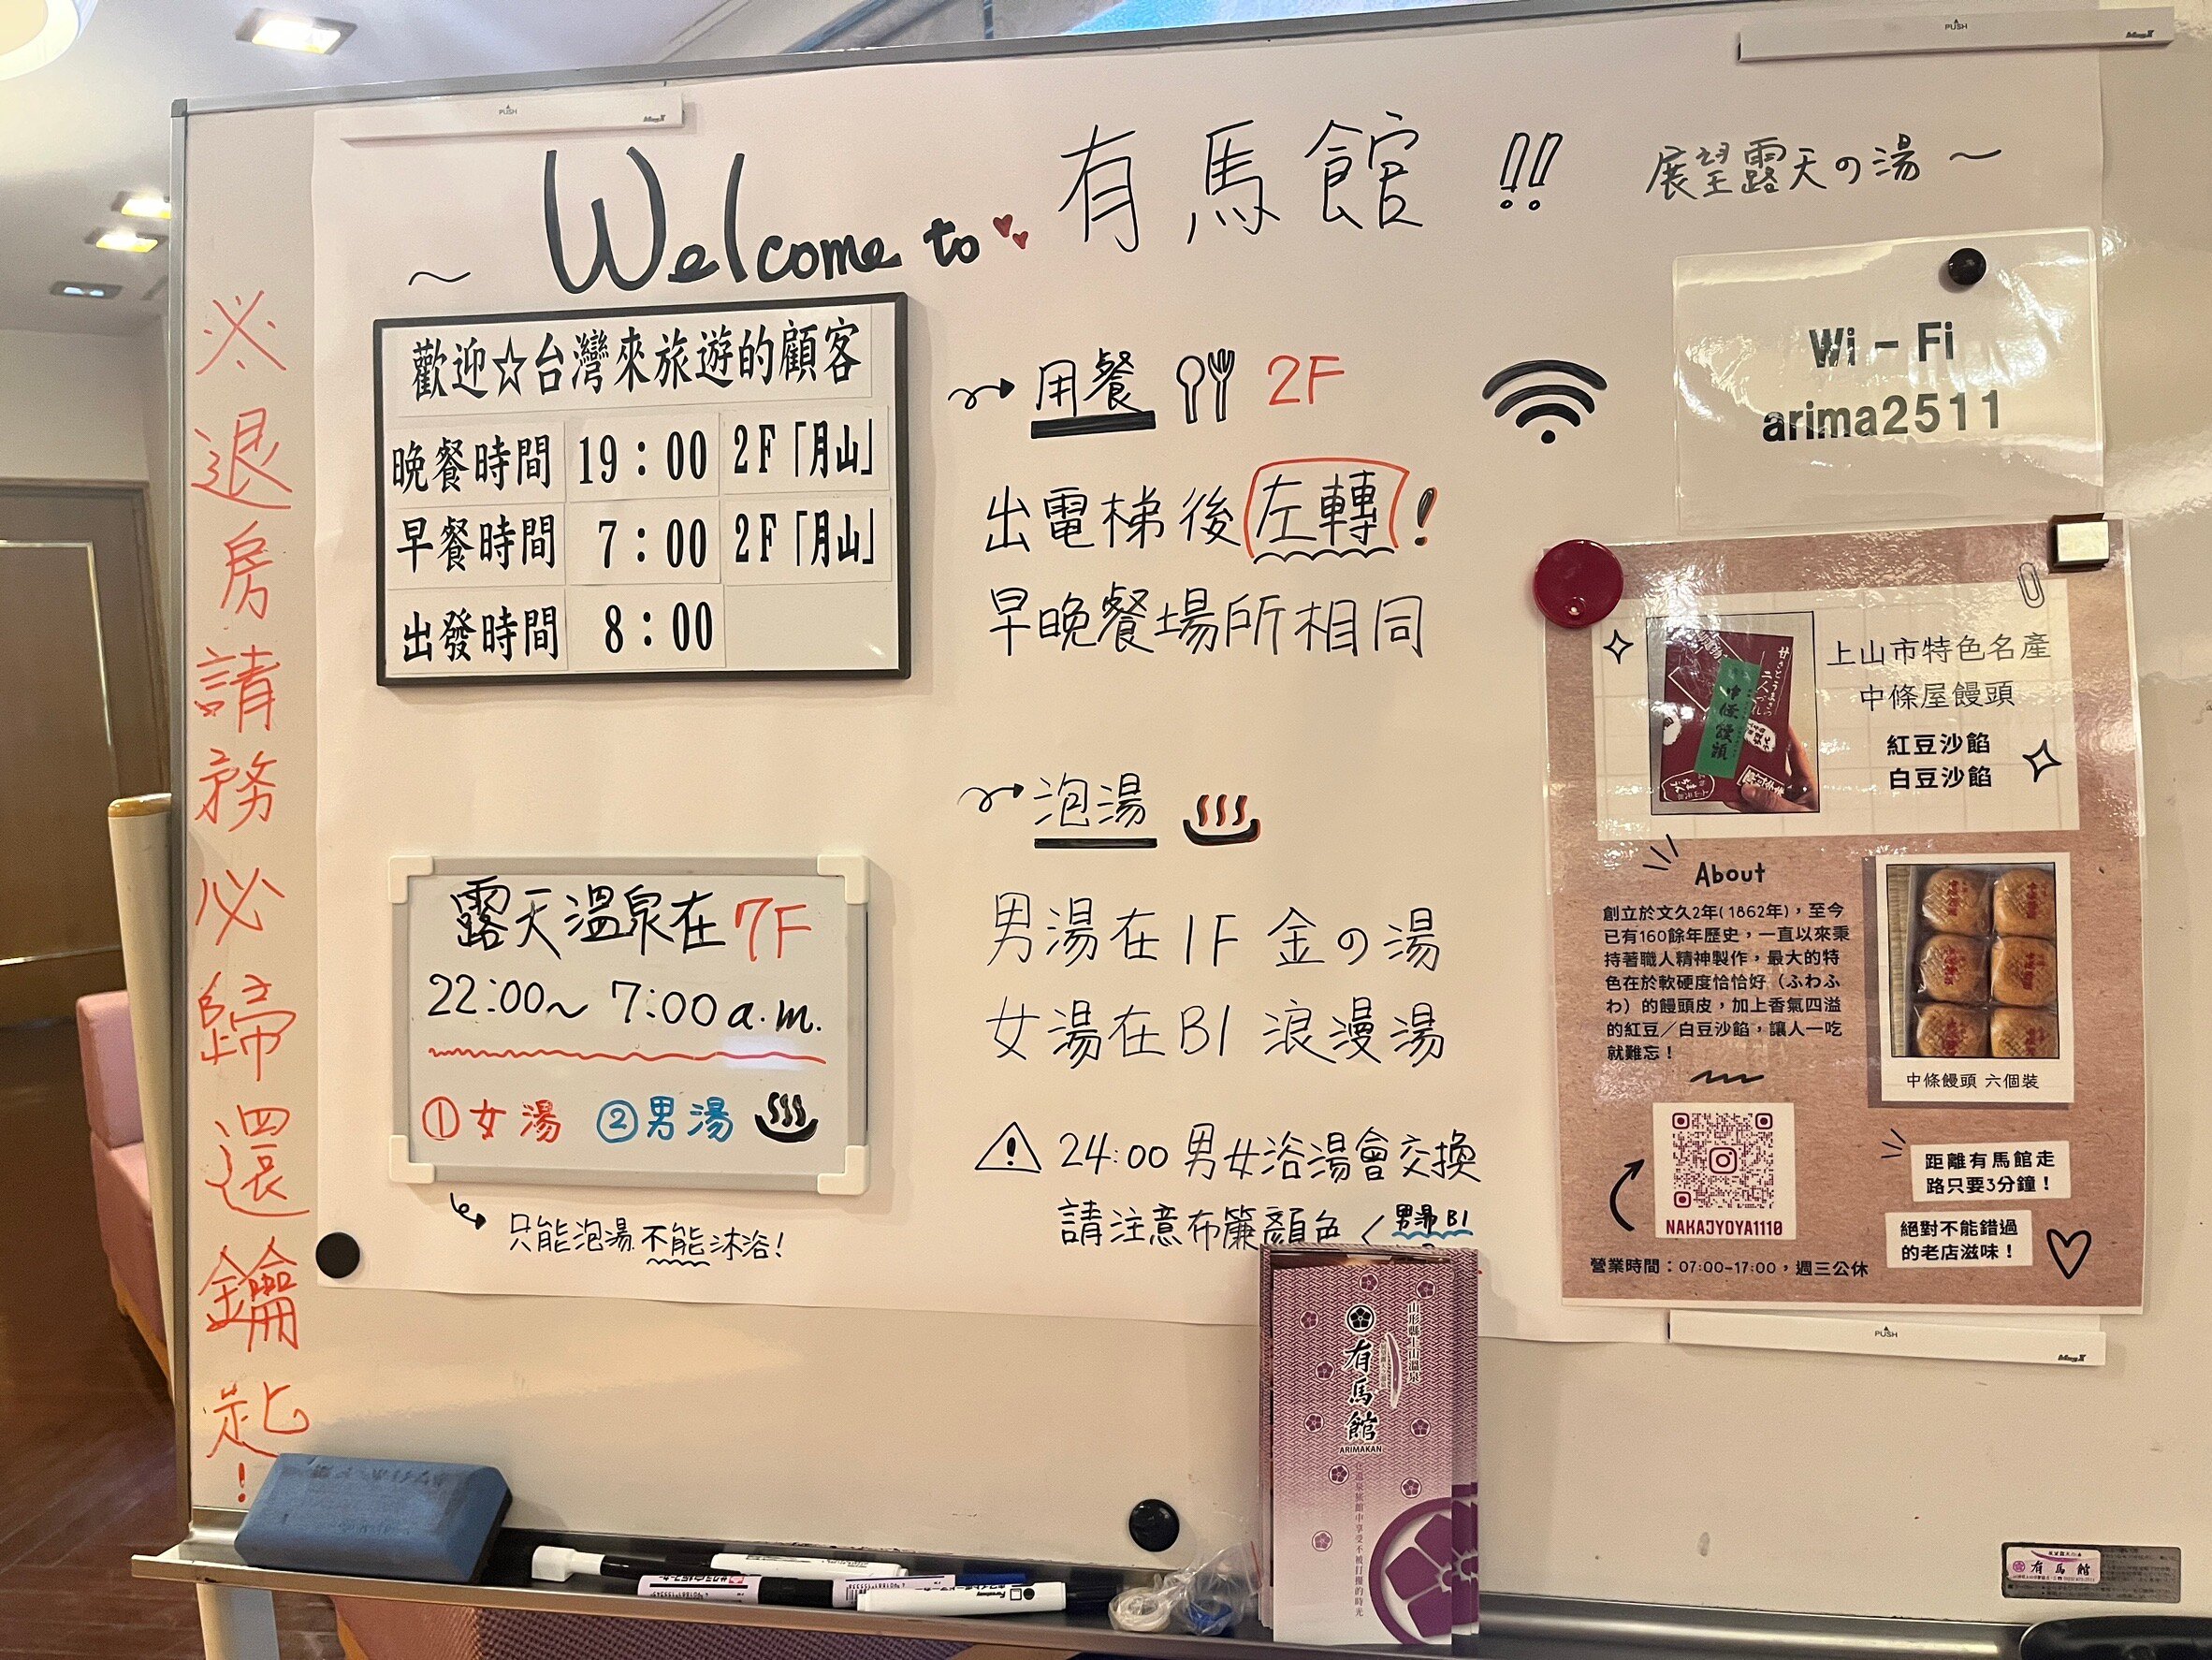 ~ Welcome to 有馬館 !! 展望露天の湯 ~
※退房請務必歸還鑰匙!
歡迎☆台灣來旅遊的顧客
晚餐時間 19:00 2F「月山」
早餐時間 7:00 2F「月山」
出發時間 8:00
用餐 2F
出電梯後左轉!
早晚餐場所相同
Wi-Fi
arima2511
露天溫泉在7F
22:00~ 7:00 a.m.
①女湯 ②男湯
只能泡湯 不能沐浴!
泡湯
男湯在1F 金の湯
女湯在B1 浪漫湯
24:00 男女浴湯會交換
請注意布簾顏色 男湯 B1
上山市特色名產
中條屋饅頭
紅豆沙餡
白豆沙餡
中條饅頭
About
創立於文久2年(1862年),至今
已有160餘年歷史,一直以來秉
持著職人精神製作,最大的特
色在於軟硬度恰恰好(ふわふ
わ)的饅頭皮,加上香氣四溢
的紅豆/白豆沙餡,讓人一吃
就難忘!
中條饅頭 六個裝
NAKAJYOYA1110
距離有馬館走
路只要3分鐘!
絕對不能錯過
的老店滋味!
營業時間:07:00-17:00,週三公休
山形縣上山溫泉
有馬館
ARIMAKAN
在溫泉旅館中享受不被打擾的時光
有馬館
PUSH
PUSH
PUSH